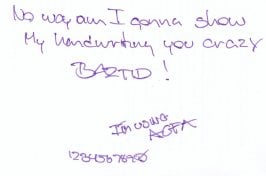 No way am I gonna show
My handwriting you crazy
BAZTID!
I'm using
AGFA
1234567890